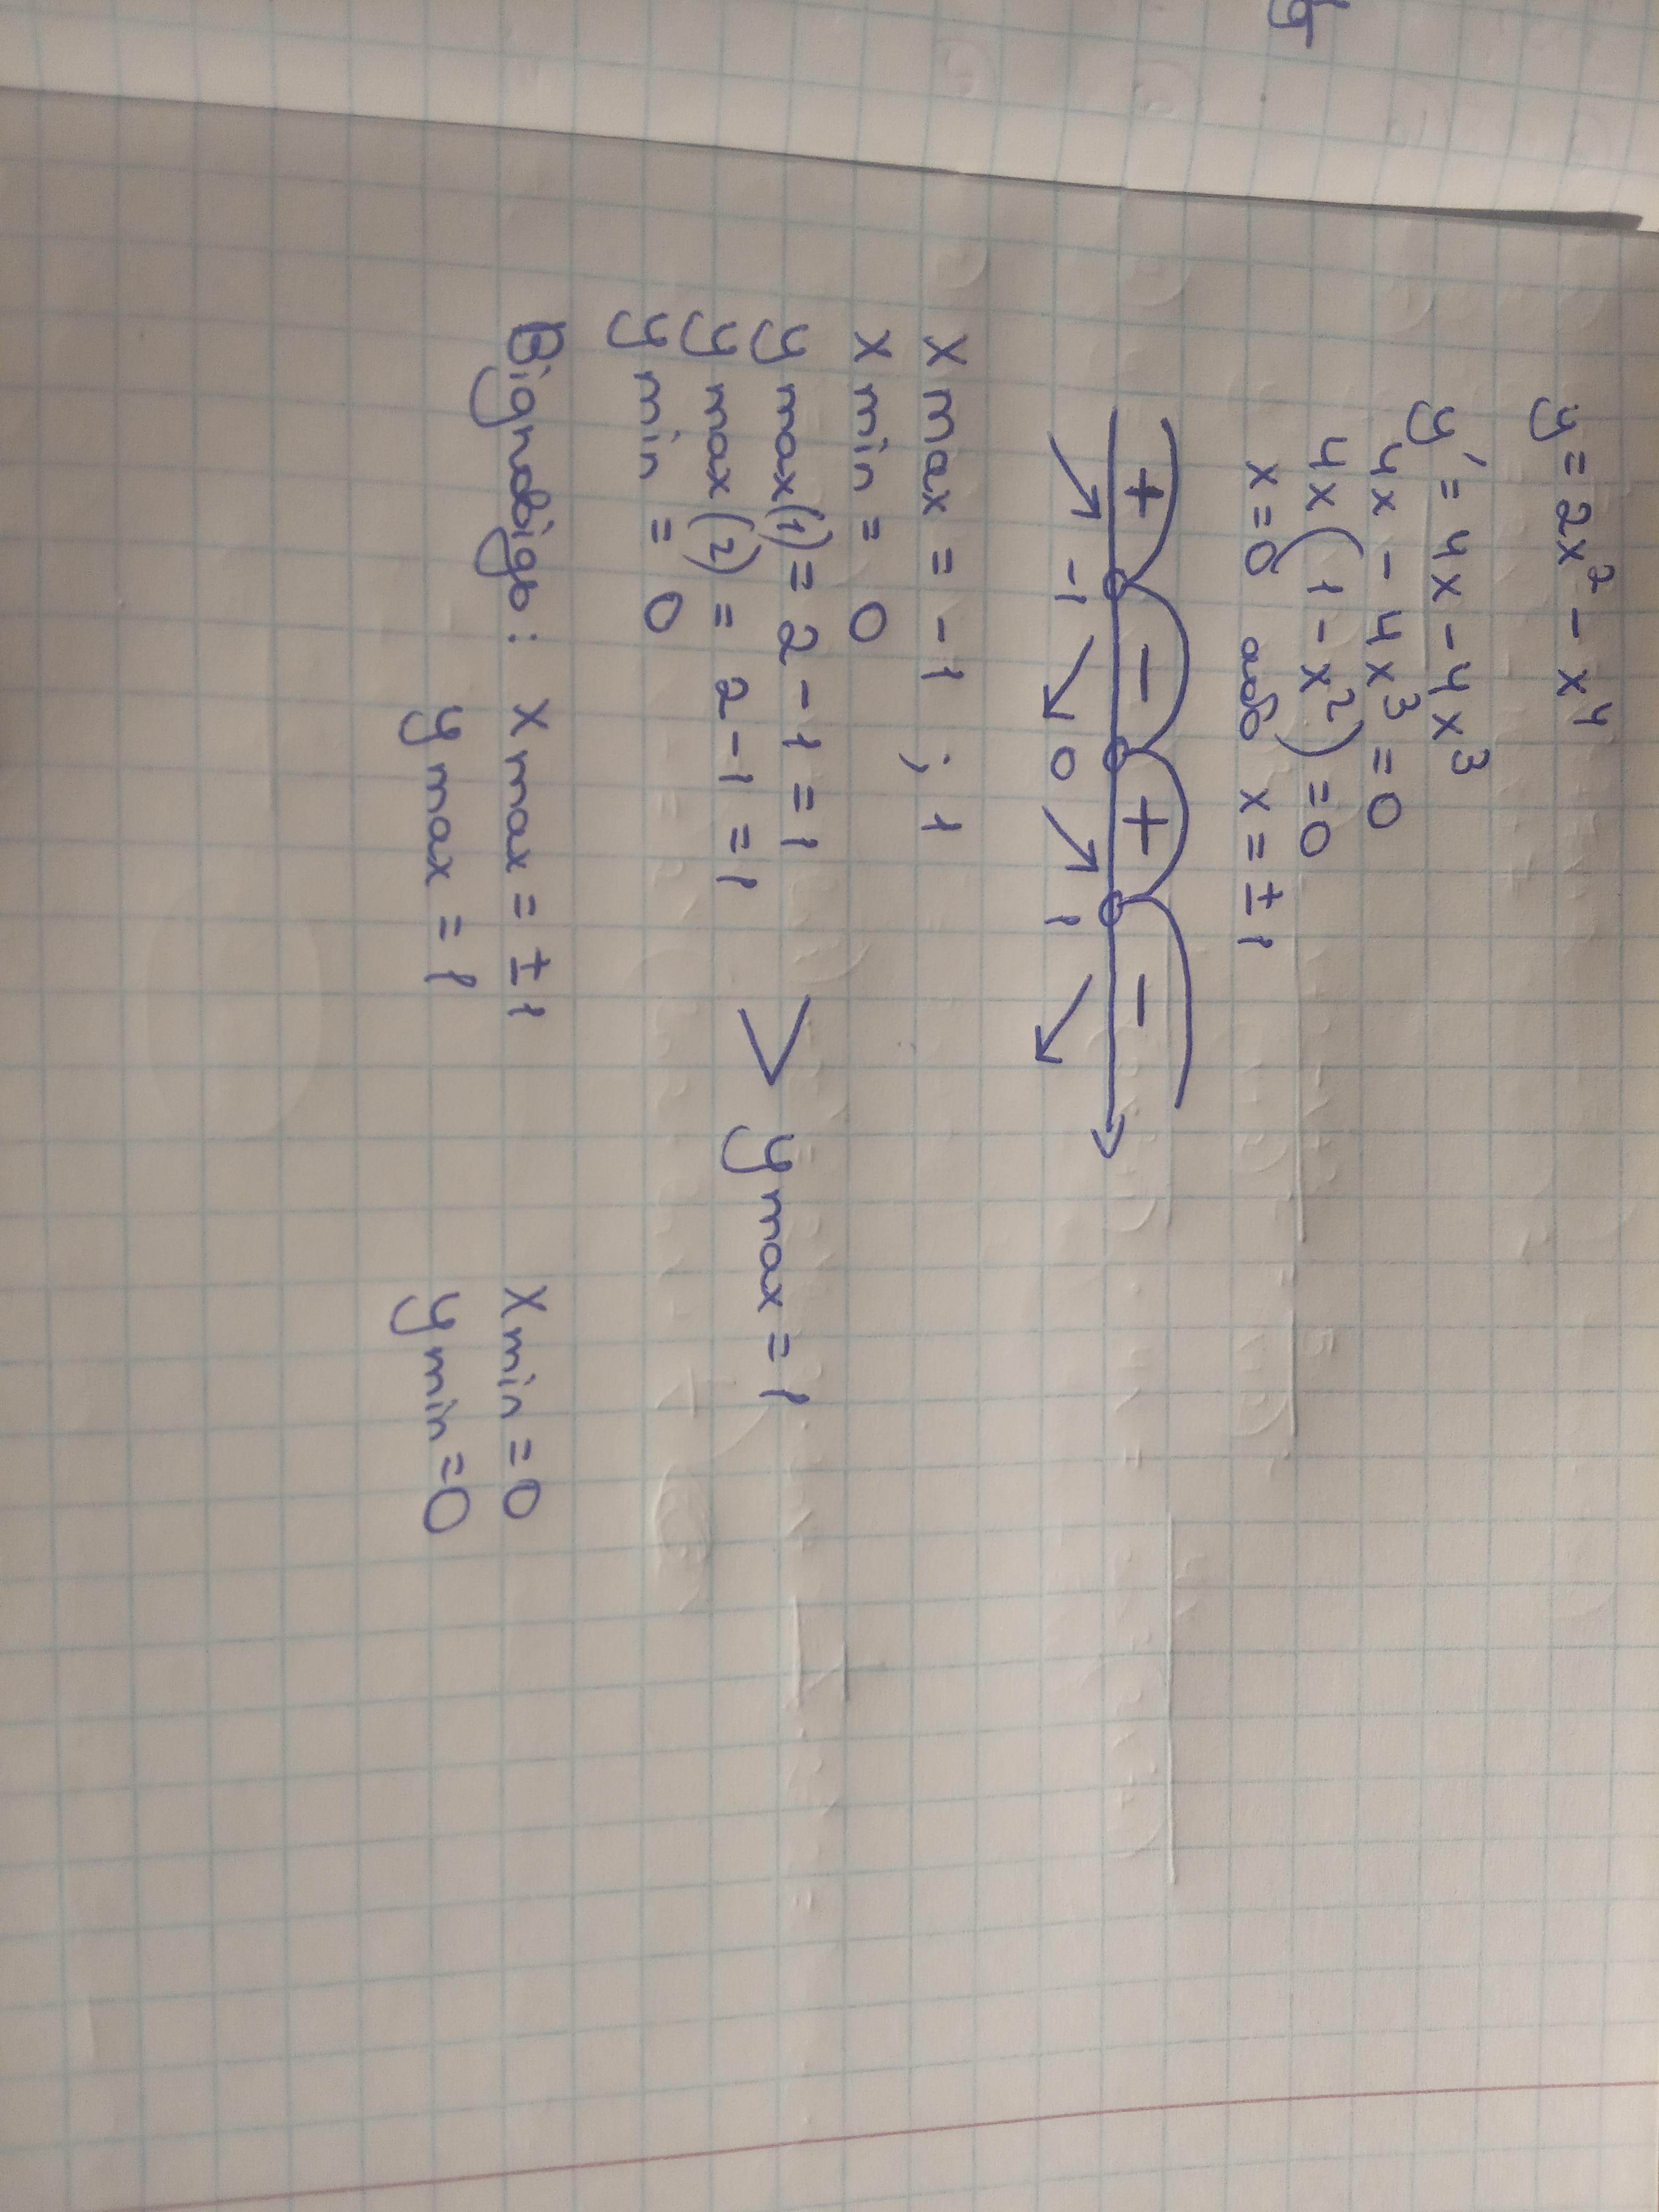 y = 2x² - x⁴
y' = 4x - 4x³
4x - 4x³ = 0
4x(1 - x²) = 0
x = 0 або x = ±1
+ - + -
-1 0 1
x max = -1 ; 1
x min = 0
y max(1) = 2 - 1 = 1
y max(2) = 2 - 1 = 1 > y max = 1
y min = 0
Відповідь: x max = ±1 x min = 0
y max = 1 y min = 0